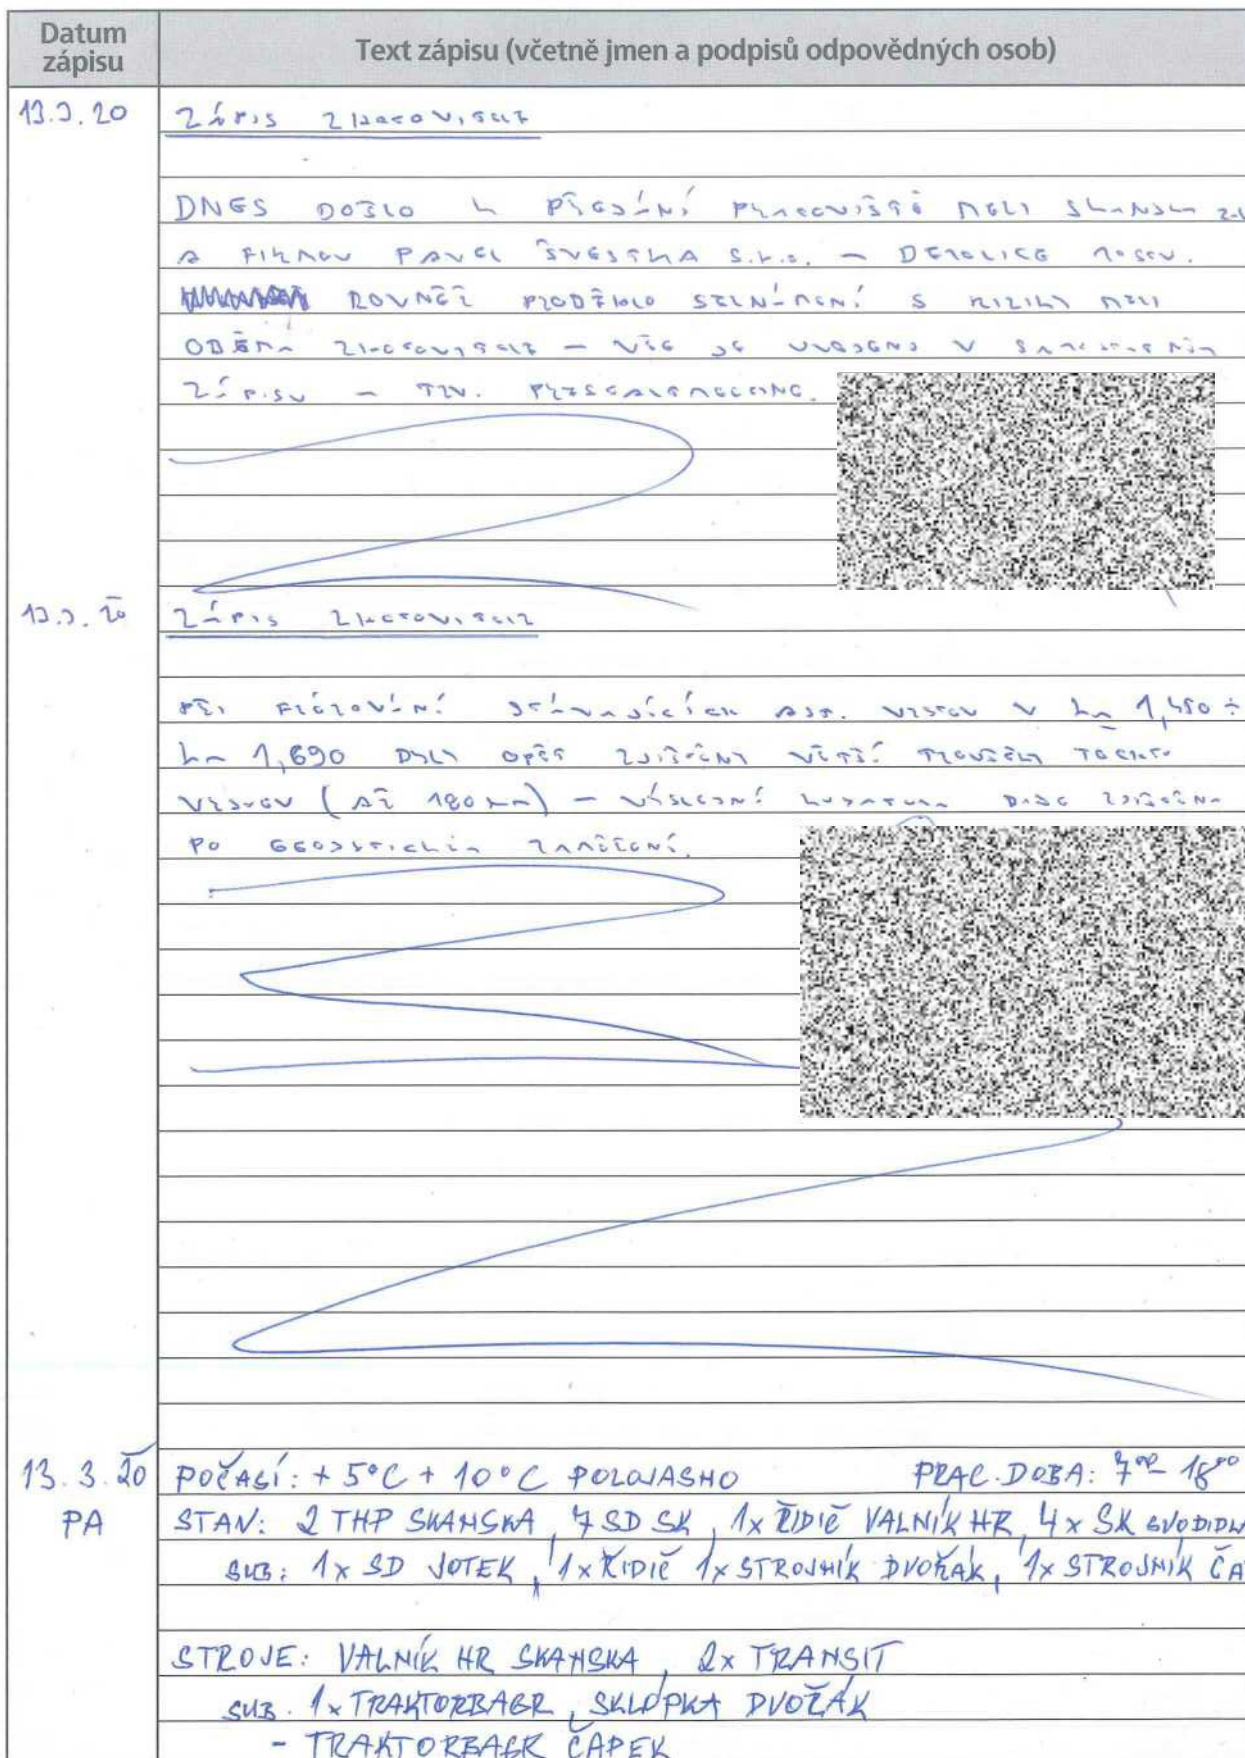 Datum zápisu
Text zápisu (včetně jmen a podpisů odpovědných osob)
13.3.20 Zápis zhotovitele
DNES DOŠLO K PŘEDÁNÍ PRACOVIŠTĚ MEZI SKANSKA
A FIRMOU PAVEL ŠVESTKA S.R.O. – DEMOLICE MOSTU.
ROVNĚŽ PROBĚHLO SEZNÁMENÍ S RIZIKY MEZI
OBĚMA ZHOTOVITELI – VŠE JE UVEDENO V SAMOSTATNÉM
ZÁPISU – TZV.
13.3.20 Zápis zhotovitele
PŘI FRÉZOVÁNÍ STÁVAJÍCÍCH ASF. VRSTEV V km 1,450 ÷
km 1,690 BYLY OPĚT ZJIŠTĚNY VĚTŠÍ TLOUŠŤKY TĚCHTO
VRSTEV (AŽ 180 mm) – VÝSLEDNÁ KUBATURA BUDE ZJIŠTĚNA
PO GEODETICKÉM ZAMĚŘENÍ.
13.3.20 POČASÍ: +5°C +10°C POLOJASNO PRAC. DOBA: 7⁰⁰ – 18⁰⁰
PA STAV: 2 THP SKANSKA, 7 SD SK, 1x ŘIDIČ VALNÍK HR, 4x SK SVODIDLA
SUB: 1x SD JOTEK, 1x ŘIDIČ 1x STROJNÍK DVOŘÁK, 1x STROJNÍK ČA
STROJE: VALNÍK HR SKANSKA, 2x TRANSIT
SUB. 1x TRAKTORBAGR, SKLÓPKA DVOŘÁK
- TRAKTORBAGR ČAPEK